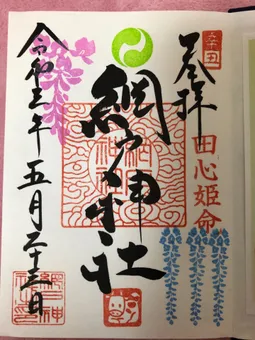 奉拝
田心姫命
網戸神社
令和三年五月二十三日